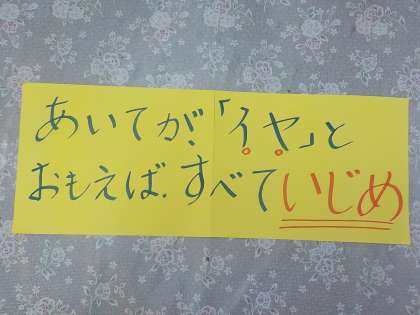 あいてが、「イヤ」と
おもえば、すべていじめ